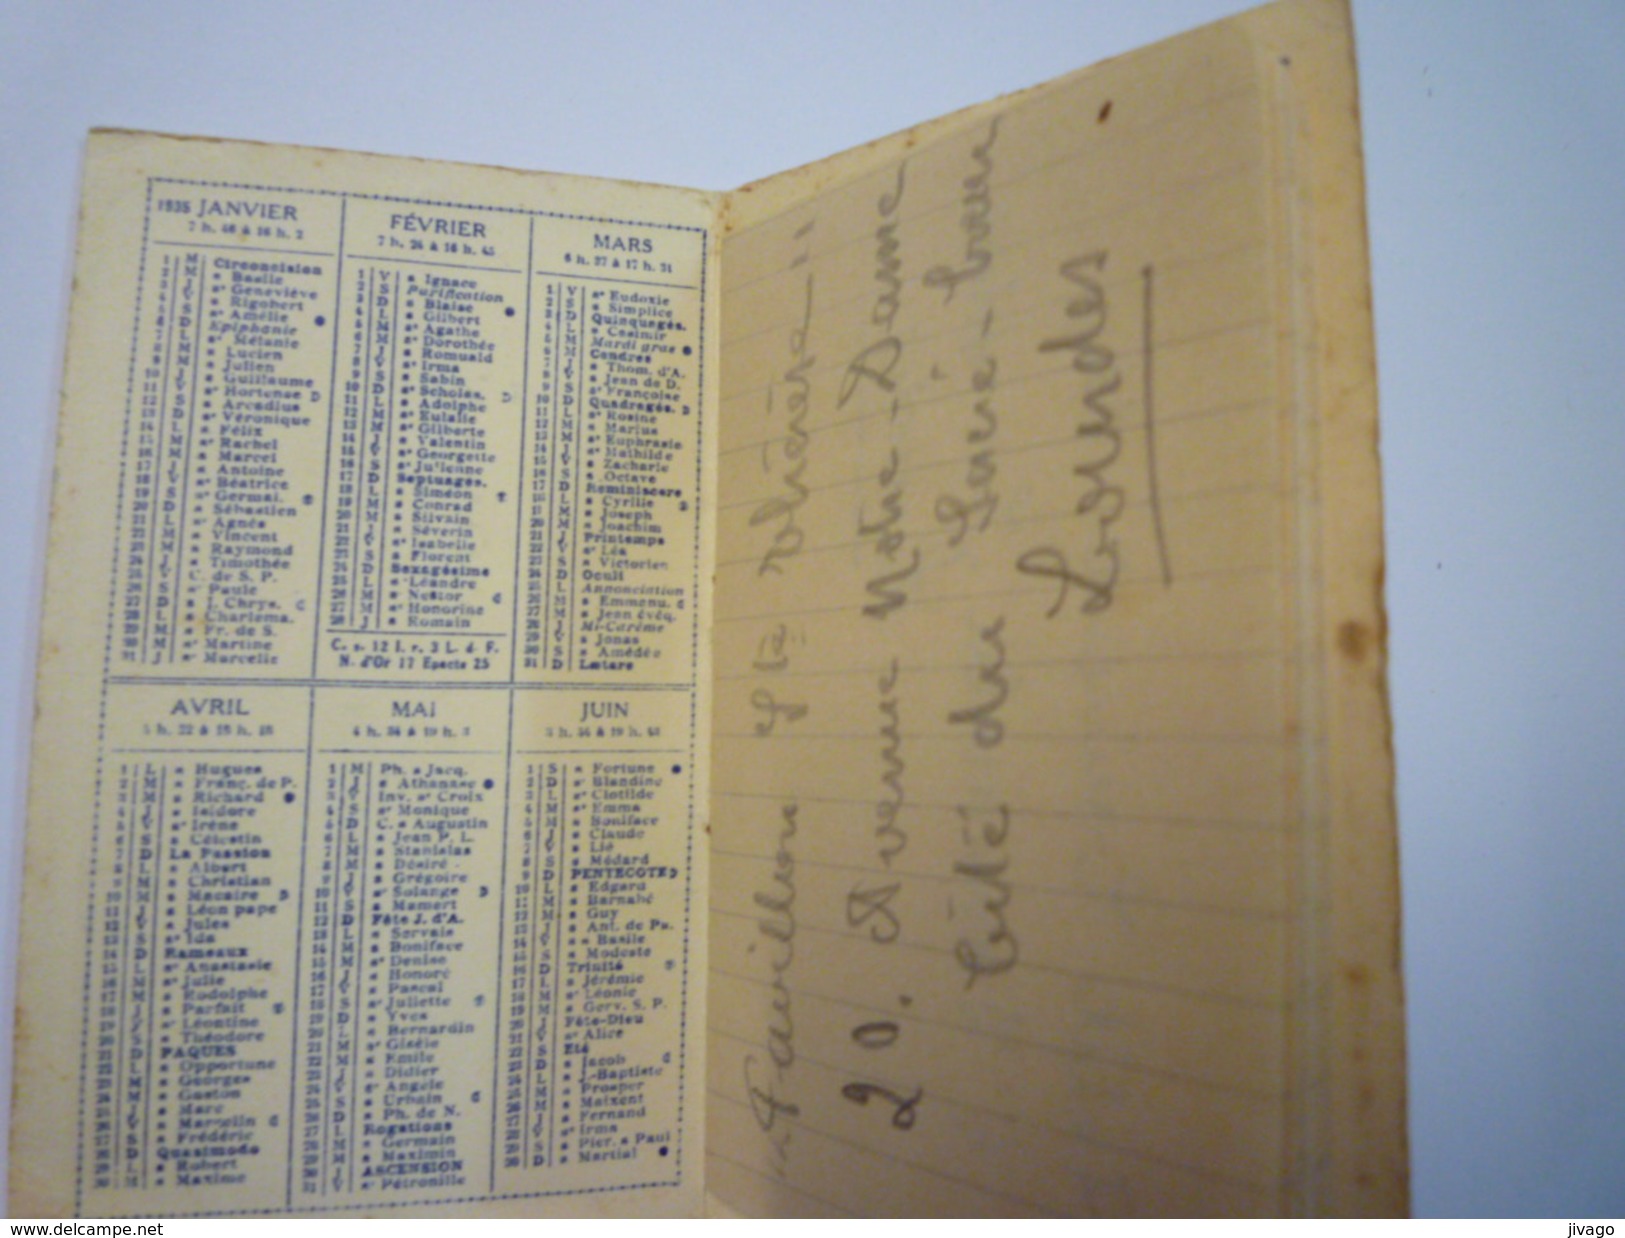 1935 JANVIER
7 h. 46 à 16 h. 3
1 M Circoncision
2 M s Basile
3 J se Geneviève
4 V s Rigobert
5 S se Amélie
6 D Epiphanie
7 L se Mélanie
8 M s Lucien
9 M s Julien
10 J s Guillaume
11 V se Hortense
12 S s Arcadius
13 D se Véronique
14 L s Félix
15 M se Rachel
16 M s Marcel
17 J s Antoine
18 V se Béatrice
19 S se Germai.
20 D s Sébastien
21 L se Agnès
22 M s Vincent
23 M s Raymond
24 J s Timothée
25 V C. de S. P.
26 S se Paule
27 D s J. Chrys.
28 L s Charlema.
29 M s Fr. de S.
30 M se Martine
31 J se Marcelle
FÉVRIER
7 h. 24 à 16 h. 45
1 V s Ignace
2 S Purification
3 D s Blaise
4 L s Gilbert
5 M se Agathe
6 M se Dorothée
7 J s Romuald
8 V se Irma
9 S s Sabin
10 D se Scholas.
11 L s Adolphe
12 M se Eulalie
13 M se Gilberte
14 J s Valentin
15 V se Georgette
16 S se Julienne
17 D Septuages.
18 L s Siméon
19 M s Conrad
20 M s Silvain
21 J s Séverin
22 V se Isabelle
23 S s Florent
24 D Sexagésime
25 L s Léandre
26 M s Nestor
27 M se Honorine
28 J s Romain
C. s. 12 I. r. 3 L. d. F.
N. d'Or 17 Epacte 25
MARS
6 h. 37 à 17 h. 31
1 V se Eudoxie
2 S s Simplice
3 D Quinquagés.
4 L s Casimir
5 M Mardi gras
6 M Cendres
7 J s Thom. d'A.
8 V s Jean de D.
9 S se Françoise
10 D Quadragés.
11 L se Rosine
12 M s Marius
13 M se Euphrasie
14 J se Mathilde
15 V s Zacharie
16 S s Octave
17 D Reminiscere
18 L s Cyrille
19 M s Joseph
20 M s Joachim
21 J Printemps
22 V se Léa
23 S s Victorien
24 D Oculi
25 L Annonciation
26 M s Emmanu.
27 M s Jean évêq.
28 J Mi-Carême
29 V s Jonas
30 S s Amédée
31 D Lætare
AVRIL
5 h. 32 à 18 h. 18
1 L s Hugues
2 M s Franç. de P.
3 M s Richard
4 J s Isidore
5 V se Irène
6 S s Célestin
7 D La Passion
8 L s Albert
9 M s Christian
10 M s Macaire
11 J s Léon pape
12 V s Jules
13 S se Ida
14 D Rameaux
15 L se Anastasie
16 M se Julie
17 M s Rodolphe
18 J s Parfait
19 V se Léontine
20 S s Théodore
21 D PAQUES
22 L s Opportune
23 M s Georges
24 M s Gaston
25 J s Marc
26 V s Marcelin
27 S s Frédéric
28 D Quasimodo
29 L s Robert
30 M s Maxime
MAI
4 h. 34 à 19 h. 3
1 M Ph. s Jacq.
2 J s Athanase
3 V Inv. se Croix
4 S se Monique
5 D C. s Augustin
6 L s Jean P. L.
7 M s Stanislas
8 M s Désiré
9 J s Grégoire
10 V se Solange
11 S s Mamert
12 D Fête J. d'A.
13 L s Servais
14 M s Boniface
15 M se Denise
16 J s Honoré
17 V s Pascal
18 S se Juliette
19 D s Yves
20 L s Bernardin
21 M se Gisèle
22 M s Emile
23 J s Didier
24 V se Angèle
25 S s Urbain
26 D s Ph. de N.
27 L Rogations
28 M s Germain
29 M s Maximin
30 J ASCENSION
31 V se Pétronille
JUIN
3 h. 54 à 19 h. 43
1 S s Fortune
2 D se Blandine
3 L se Clotilde
4 M se Emma
5 M s Boniface
6 J s Claude
7 V s Lié
8 S s Médard
9 D PENTECOTE
10 L s Edgard
11 M s Barnabé
12 M s Guy
13 J s Ant. de Pa.
14 V s Basile
15 S s Modeste
16 D Trinité
17 L s Jérémie
18 M se Léonie
19 M s Gerv. S. P.
20 J Fête-Dieu
21 V se Alice
22 S Eté
23 D s Jacob
24 L s J.-Baptiste
25 M s Prosper
26 M s Maixent
27 J s Fernand
28 V se Irma
29 S s Pier. s Paul
30 D s Martial
"Pavillon Ste Thérèse"
20. Avenue Notre-Dame
Cité du Sacré-Coeur
Lourdes
www.delcampe.net
jivago